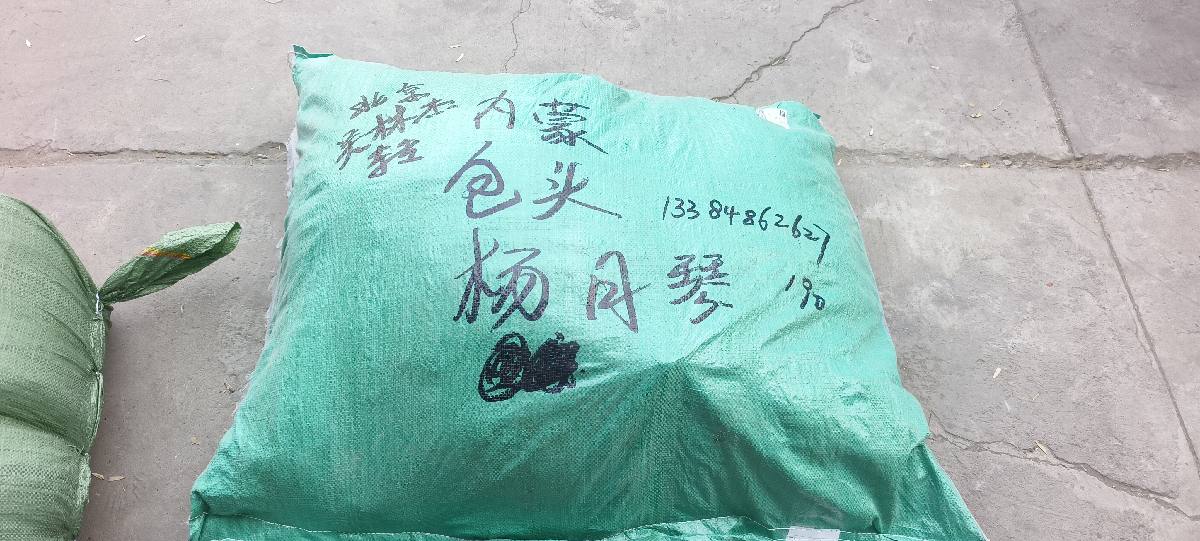 北京
天林杰
李宝
内蒙
包头
13384862627
杨月琴
190